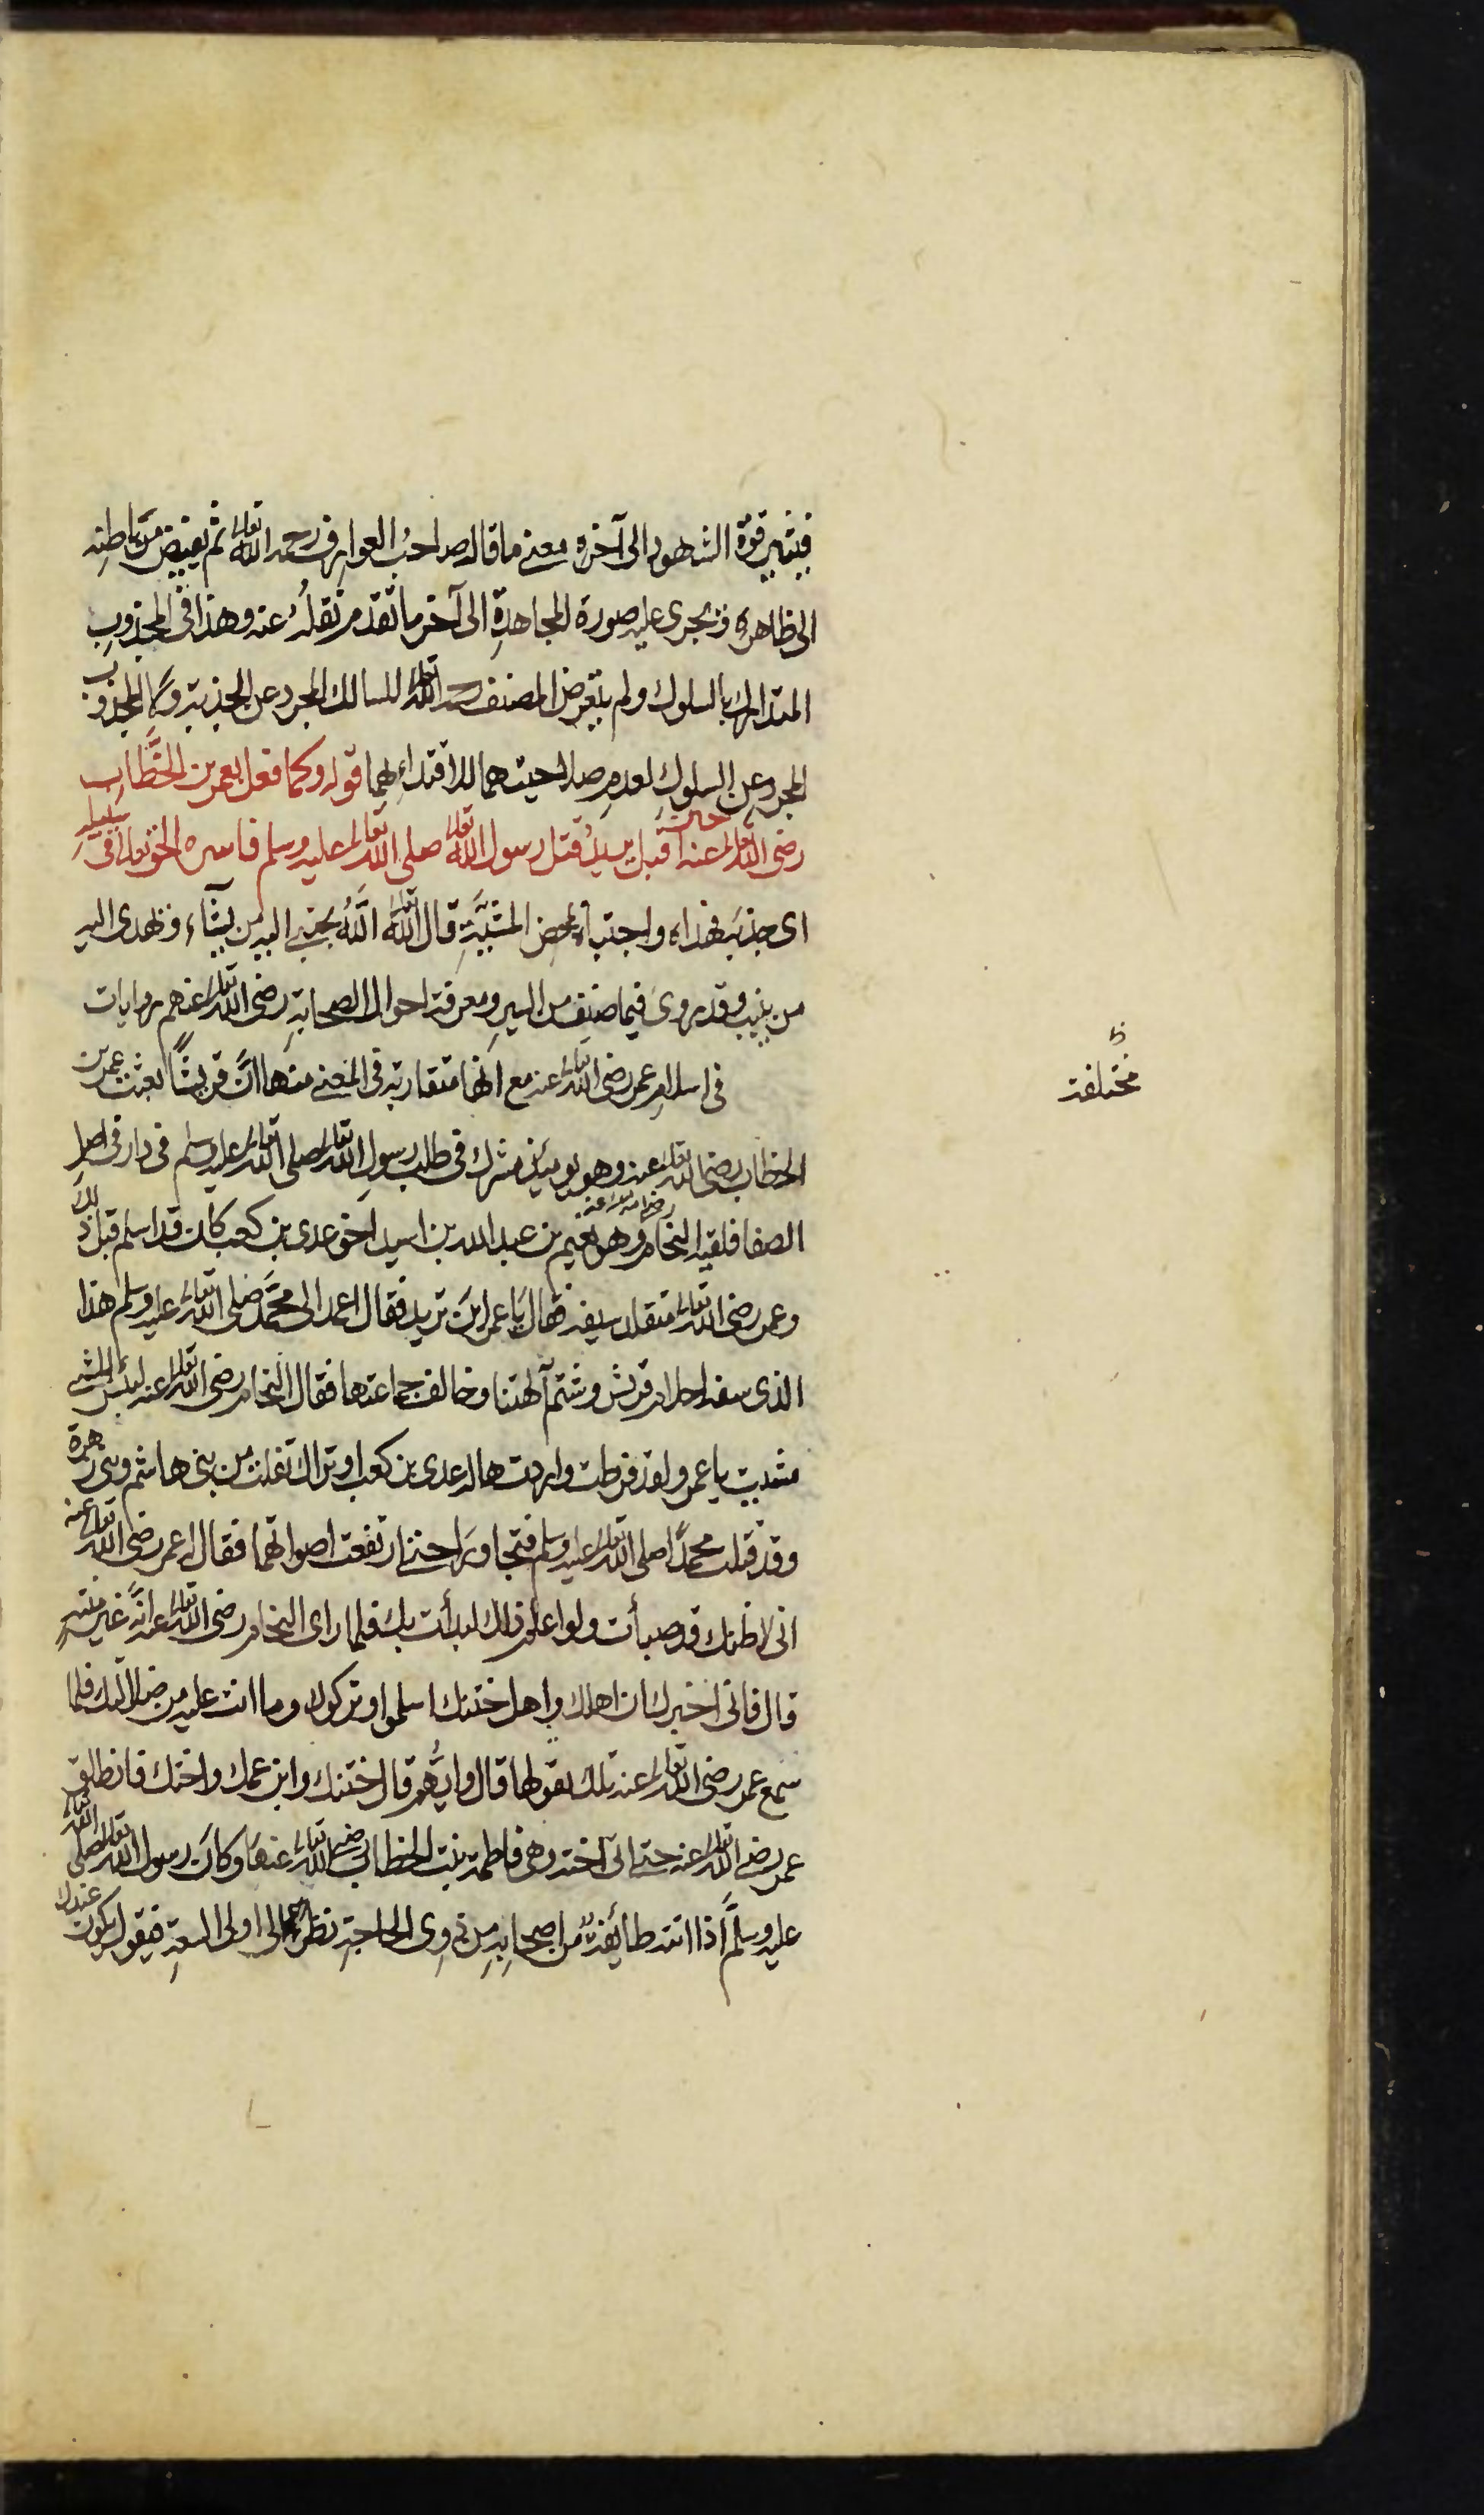 فيثير قوة الشهود الى آخره معنى ما قاله صاحب العوارف رحمه الله تعالى ثم يفيض من باطنه
الى ظاهره وتجرى عليه صورة المجاهدة الى آخر ما تقدم نقله عنه وهذا فى المجذوب
المتدارك بالسلوك ولم يتعرض المصنف رحمه الله تعالى للسالك المجرد عن الجذبة ولا للمجذوب
المجرد عن السلوك لعدم صلاحيتهما للاقتداء بهما قوله وكما فعل بعمر بن الخطاب
رضى الله تعالى عنه حين اقبل يريد قتل رسول الله تعالى صلى الله تعالى عليه وسلم فاسره الحق تعالى فى سبيله
اى جذبه فهداه واجتباه لمحض المشيّة قال الله تعالى اللّٰه يجتبى اليه من يشآء ويهدى اليه
من ينيب وقد روى فيما صنف من السير ومعرفة احوال الصحابة رضى الله تعالى عنهم روايات
مختلفة
فى اسلام عمر رضى الله تعالى عنه مع انها متقاربة فى المعنى منها ان قريشا بعثت عمر بن
الخطاب رضى الله تعالى عنه وهو يومئذ مشرك فى طلب رسول الله تعالى صلى الله تعالى عليه وسلم فى دار فى اصل
الصفا فلقيه النحام وهو نعيم بن عبد الله بن اسيد رضى الله تعالى عنه اخو عدى بن كعب كان قد اسلم قبل ذلك
وعمر رضى الله تعالى متقلد سيفه فقال يا عمر اين تريد فقال اعمد الى محمّد صلى الله تعالى عليه وسلم هذا
الذى سفه احلام قريش وشتم آلهتنا وخالف جماعتها فقال النحام رضى الله تعالى عنه لبئس الممشى
مشيت يا عمر ولقد فرطت واردت هلاك عدى بن كعب او تراك تفلت من بنى هاشم وبنى زهرة
وقد قتلت محمدًا صلى الله تعالى عليه وسلم فتحاورا حتى ارتفعت اصواتهما فقال له عمر رضى الله تعالى عنه
انى لاظنك قد صبأت ولو اعلم ذلك لبدأت بك فلما راى النحام رضى الله تعالى عنه انّه غير منتهٍ
قال فانى اخبرك ان اهلك واهل ختنك اسلموا وتركوك وما انت عليه من ضلالتك فلما
سمع عمر رضى الله تعالى عنه تلك يقولها قال وايّهم قال ختنك وابن عمك واختك فانطلق
عمر رضى الله تعالى عنه حتى اتى اخته وهى فاطمة بنت الخطاب رضى الله تعالى عنها وكان رسول الله تعالى صلى الله تعالى
عليه وسلم اذا اتته طائفة من اصحابه من ذوى الحاجة نظر الى اولى السعة فيقول يكون عندك